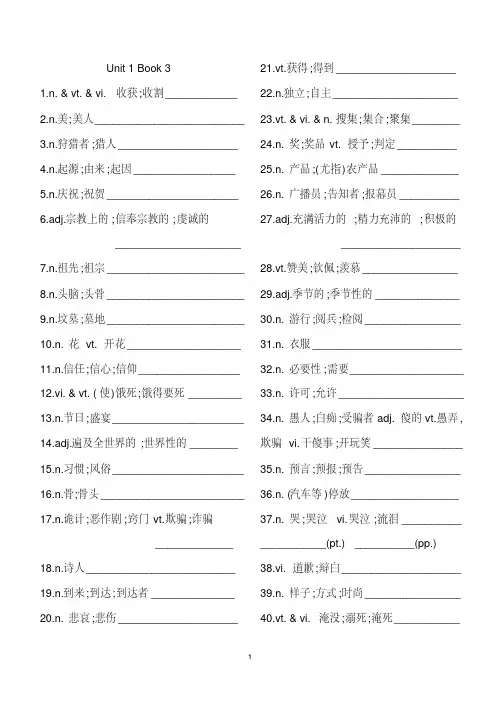 Unit 1 Book 3
1.n. & vt. & vi. 收获;收割____________
2.n.美;美人_________________________
3.n.狩猎者;猎人____________________
4.n.起源;由来;起因_________________
5.n.庆祝;祝贺______________________
6.adj.宗教上的;信奉宗教的;虔诚的
_____________________
7.n.祖先;祖宗_______________________
8.n.头脑;头骨_______________________
9.n.坟墓;墓地_______________________
10.n. 花 vt. 开花___________________
11.n.信任;信心;信仰_________________
12.vi. & vt. (使)饿死;饿得要死_________
13.n.节日;盛宴______________________
14.adj.遍及全世界的;世界性的________
15.n.习惯;风俗______________________
16.n.骨;骨头________________________
17.n.诡计;恶作剧;窍门vt.欺骗;诈骗
_____________
18.n.诗人_________________________
19.n.到来;到达;到达者______________
20.n. 悲哀;悲伤____________________
21.vt.获得;得到____________________
22.n.独立;自主_____________________
23.vt. & vi. & n. 搜集;集合;聚集________
24.n. 奖;奖品vt. 授予;判定__________
25.n. 产品;(尤指)农产品_____________
26.n. 广播员;告知者;报幕员__________
27.adj.充满活力的;精力充沛的;积极的
____________________
28.vt.赞美;钦佩;羡慕________________
29.adj.季节的;季节性的______________
30.n. 游行;阅兵;检阅________________
31.n. 衣服_________________________
32.n. 必要性;需要___________________
33.n. 许可;允许_____________________
34.n. 愚人;白痴;受骗者adj. 傻的vt.愚弄,
欺骗 vi.干傻事;开玩笑_______________
35.n. 预言;预报;预告________________
36.n. (汽车等)停放__________________
37.n. 哭;哭泣 vi.哭泣;流泪__________
___________(pt.) __________(pp.)
38.vi. 道歉;辩白____________________
39.n. 样子;方式;时尚________________
40.vt. & vi. 淹没;溺死;淹死___________
1